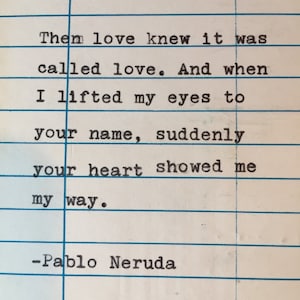 Then love knew it was
called love. And when
I lifted my eyes to
your name, suddenly
your heart showed me
my way.
-Pablo Neruda